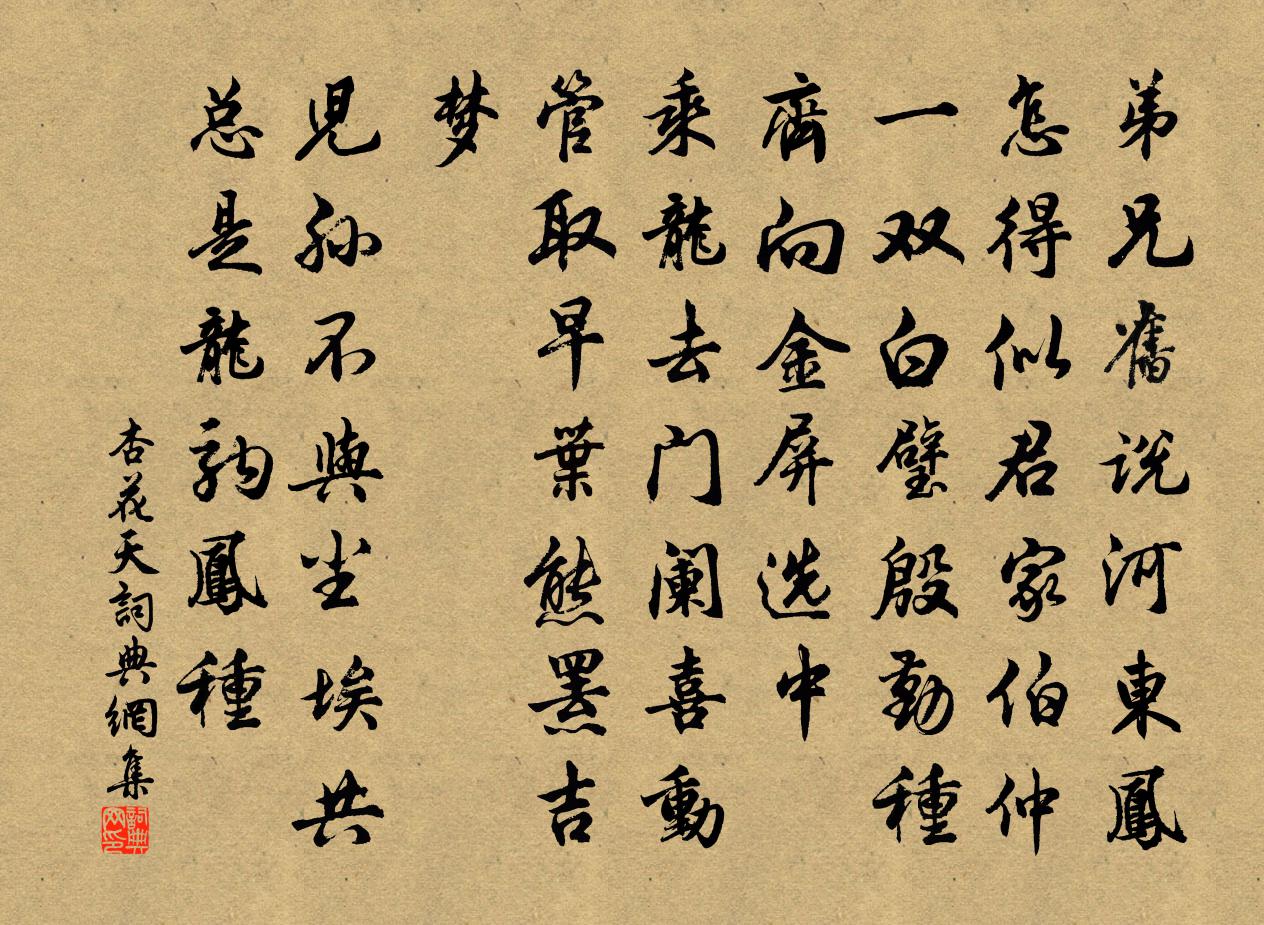 弟兄舊说河東鳳
怎得似君家伯仲
一双白璧殷勤種
齊向金屏选中
乘龍去门阑喜動
管取早葉熊罴吉
梦
児孙不與尘埃共
总是龍駒鳳種
杏花天詞典網集
詞典
网印